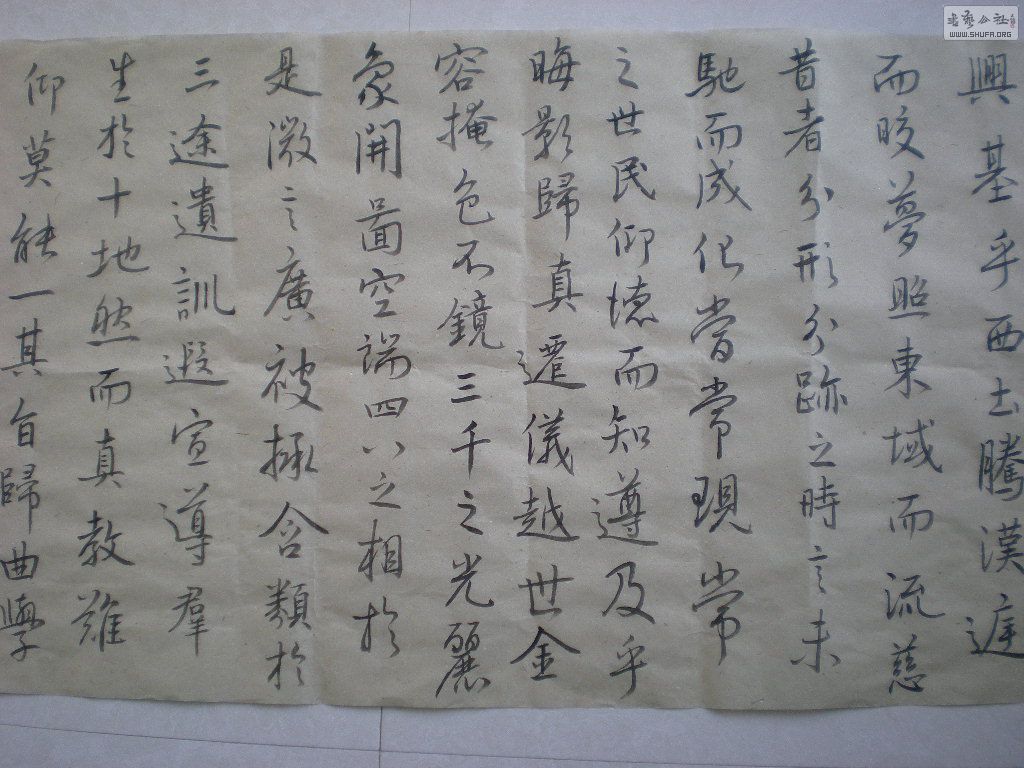 書藝公社
WWW.SHUFA.ORG
興基乎西土騰漢庭
而皎夢照東域而流慈
昔者分形分跡之時言未
馳而成化當常現常
之世民仰德而知遵及乎
晦影歸真遷儀越世金
容掩色不鏡三千之光麗
象開圖空端四八之相於
是微言廣被拯含類於
三途遺訓遐宣導羣
生於十地然而真教難
仰莫能一其旨歸曲學